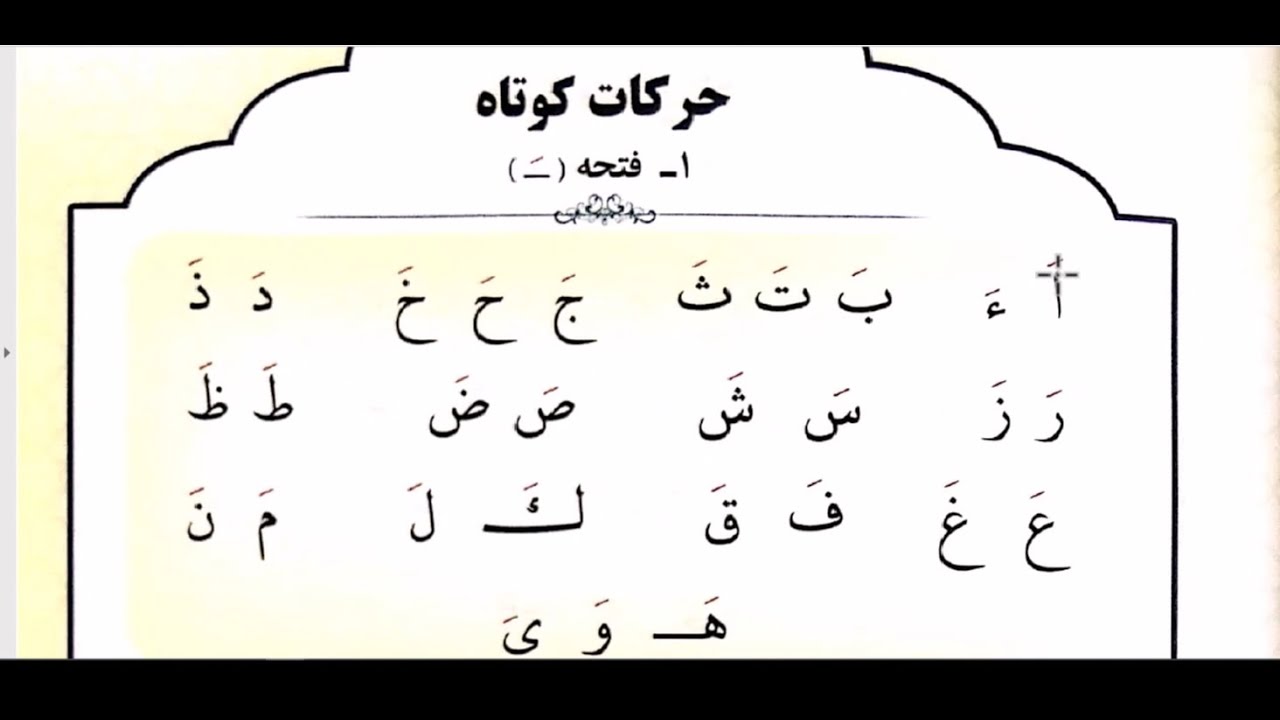 حرکات کوتاه
۱ـ فتحه (ـَ)
أَ ءَ بَ تَ ثَ جَ حَ خَ دَ ذَ
رَ زَ سَ شَ صَ ضَ طَ ظَ
عَ غَ فَ قَ كَ لَ مَ نَ
هَـ وَ یَ